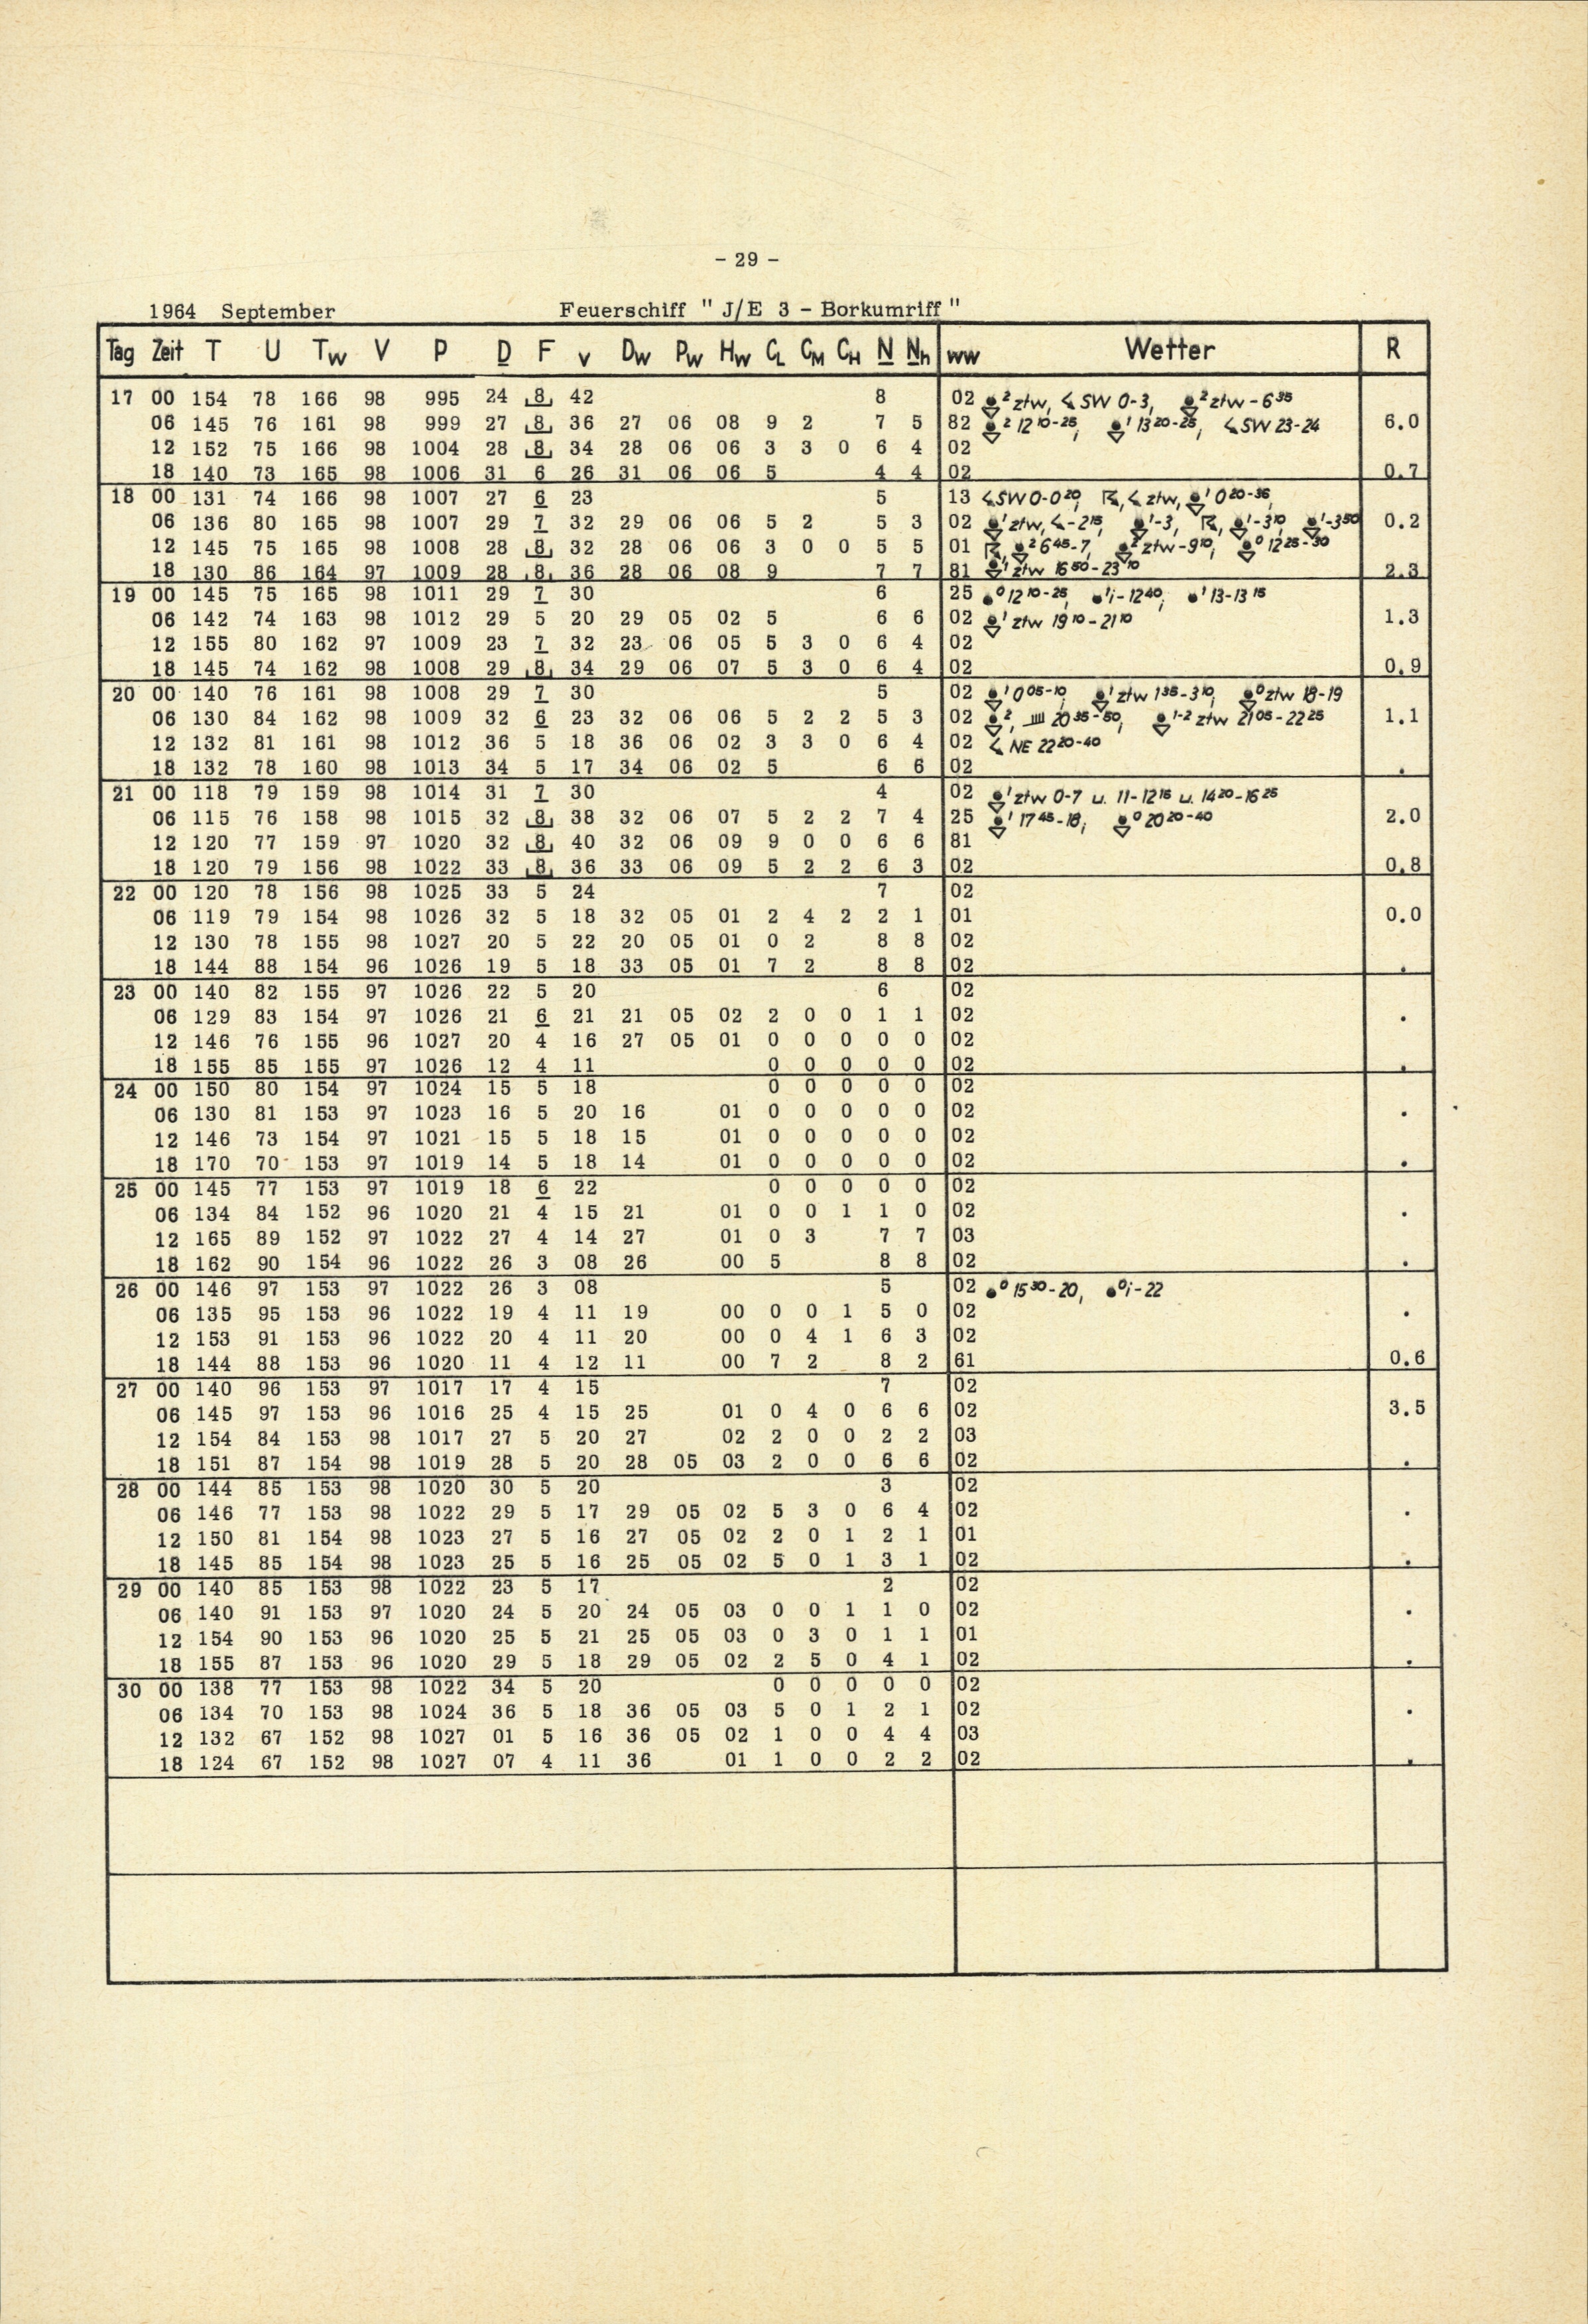 - 29 -
1964 September Feuerschiff " J/E 3 - Borkumriff "
Tag Zeit T U Tw V P D F v Dw Pw Hw CL CM CH N Nh ww Wetter R
17 00 154 78 166 98 995 24 8 42 8 02 ² ztw, SW 0-3, ² ztw - 6³⁵
06 145 76 161 98 999 27 8 36 27 06 08 9 2 7 5 82 ² 12¹⁰-²⁵, ¹ 13²⁰-²⁵, SW 23-24 6.0
12 152 75 166 98 1004 28 8 34 28 06 06 3 3 0 6 4 02
18 140 73 165 98 1006 31 6 26 31 06 06 5 4 4 02 0.7
18 00 131 74 166 98 1007 27 6 23 5 13 SW 0-0²⁰, ztw, ¹ 0²⁰-³⁵,
06 136 80 165 98 1007 29 7 32 29 06 06 5 2 5 3 02 ¹ ztw, -2¹⁵, ¹-3, ¹-3¹⁰, ¹-3⁵⁰ 0.2
12 145 75 165 98 1008 28 8 32 28 06 06 3 0 0 5 5 01 ² 6⁴⁵-7, ² ztw-9¹⁰, ⁰ 12²⁵-³⁰
18 130 86 164 97 1009 28 8 36 28 06 08 9 7 7 81 ¹ ztw 16⁵⁰-23¹⁰ 2.3
19 00 145 75 165 98 1011 29 7 30 6 25 ●⁰ 12¹⁰-²⁵, ●¹i-12⁴⁰, ●¹ 13-13¹⁵
06 142 74 163 98 1012 29 5 20 29 05 02 5 6 6 02 ¹ ztw 19¹⁰-21¹⁰ 1.3
12 155 80 162 97 1009 23 7 32 23 06 05 5 3 0 6 4 02
18 145 74 162 98 1008 29 8 34 29 06 07 5 3 0 6 4 02 0.9
20 00 140 76 161 98 1008 29 7 30 5 02 ¹ 0⁰⁵-¹⁰, ¹ ztw 1³⁵-3¹⁰, ⁰ ztw 18-19
06 130 84 162 98 1009 32 6 23 32 06 06 5 2 2 5 3 02 ², 20³⁵-⁵⁰, ¹⁻² ztw 21⁰⁵-22²⁵ 1.1
12 132 81 161 98 1012 36 5 18 36 06 02 3 3 0 6 4 02 NE 22²⁰-⁴⁰
18 132 78 160 98 1013 34 5 17 34 06 02 5 6 6 02 .
21 00 118 79 159 98 1014 31 7 30 4 02 ¹ ztw 0-7 u. 11-12¹⁵ u. 14²⁰-16²⁵
06 115 76 158 98 1015 32 8 38 32 06 07 5 2 2 7 4 25 ¹ 17⁴⁵-18, ⁰ 20²⁰-⁴⁰ 2.0
12 120 77 159 97 1020 32 8 40 32 06 09 9 0 0 6 6 81
18 120 79 156 98 1022 33 8 36 33 06 09 5 2 2 6 3 02 0.8
22 00 120 78 156 98 1025 33 5 24 7 02
06 119 79 154 98 1026 32 5 18 32 05 01 2 4 2 2 1 01 0.0
12 130 78 155 98 1027 20 5 22 20 05 01 0 2 8 8 02
18 144 88 154 96 1026 19 5 18 33 05 01 7 2 8 8 02 .
23 00 140 82 155 97 1026 22 5 20 6 02
06 129 83 154 97 1026 21 6 21 21 05 02 2 0 0 1 1 02 .
12 146 76 155 96 1027 20 4 16 27 05 01 0 0 0 0 0 02
18 155 85 155 97 1026 12 4 11 0 0 0 0 0 02 .
24 00 150 80 154 97 1024 15 5 18 0 0 0 0 0 02
06 130 81 153 97 1023 16 5 20 16 01 0 0 0 0 0 02 .
12 146 73 154 97 1021 15 5 18 15 01 0 0 0 0 0 02
18 170 70 153 97 1019 14 5 18 14 01 0 0 0 0 0 02 .
25 00 145 77 153 97 1019 18 6 22 0 0 0 0 0 02
06 134 84 152 96 1020 21 4 15 21 01 0 0 1 1 0 02 .
12 165 89 152 97 1022 27 4 14 27 01 0 3 7 7 03
18 162 90 154 96 1022 26 3 08 26 00 5 8 8 02 .
26 00 146 97 153 97 1022 26 3 08 5 02 ●⁰ 15³⁰-20, ●⁰i-22
06 135 95 153 96 1022 19 4 11 19 00 0 0 1 5 0 02 .
12 153 91 153 96 1022 20 4 11 20 00 0 4 1 6 3 02
18 144 88 153 96 1020 11 4 12 11 00 7 2 8 2 61 0.6
27 00 140 96 153 97 1017 17 4 15 7 02
06 145 97 153 96 1016 25 4 15 25 01 0 4 0 6 6 02 3.5
12 154 84 153 98 1017 27 5 20 27 02 2 0 0 2 2 03
18 151 87 154 98 1019 28 5 20 28 05 03 2 0 0 6 6 02 .
28 00 144 85 153 98 1020 30 5 20 3 02
06 146 77 153 98 1022 29 5 17 29 05 02 5 3 0 6 4 02 .
12 150 81 154 98 1023 27 5 16 27 05 02 2 0 1 2 1 01
18 145 85 154 98 1023 25 5 16 25 05 02 5 0 1 3 1 02 .
29 00 140 85 153 98 1022 23 5 17 2 02
06 140 91 153 97 1020 24 5 20 24 05 03 0 0 1 1 0 02 .
12 154 90 153 96 1020 25 5 21 25 05 03 0 3 0 1 1 01
18 155 87 153 96 1020 29 5 18 29 05 02 2 5 0 4 1 02 .
30 00 138 77 153 98 1022 34 5 20 0 0 0 0 0 02
06 134 70 153 98 1024 36 5 18 36 05 03 5 0 1 2 1 02 .
12 132 67 152 98 1027 01 5 16 36 05 02 1 0 0 4 4 03
18 124 67 152 98 1027 07 4 11 36 01 1 0 0 2 2 02 .